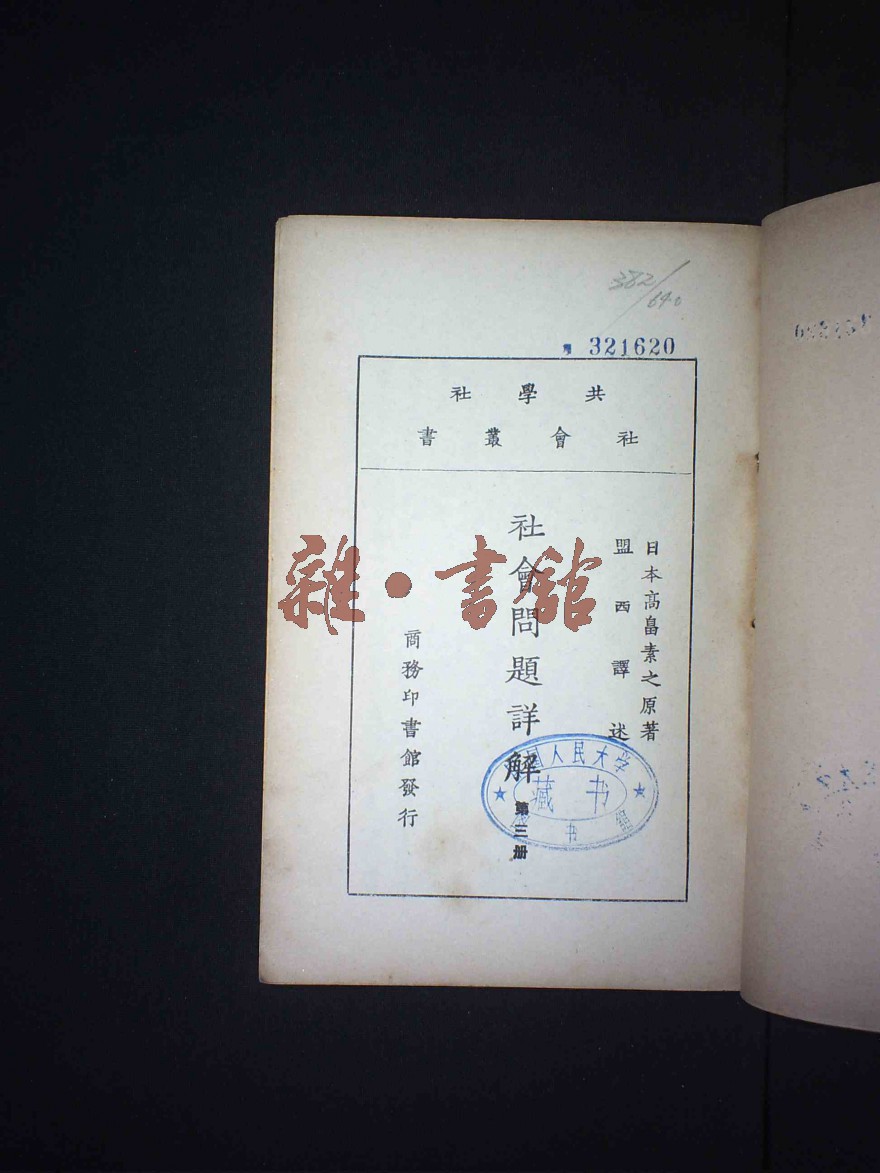 382/640
321620
共學社
社會叢書
日本高畠素之原著
盟西譯述
社會問題詳解
第三册
商務印書館發行
國人民大学
藏书
书館
雜·書館